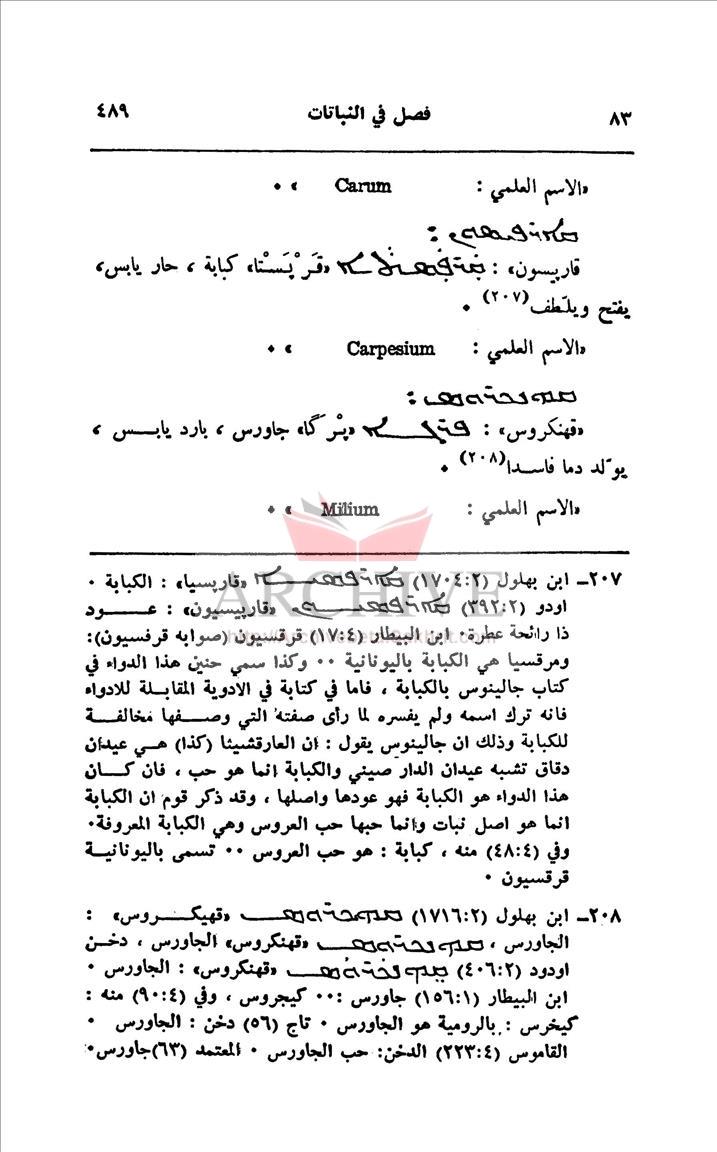 ٨٣ فصل في النباتات ٤٨٩
«الاسم العلمي : Carum » ٠
قاريسون» : «قَرْپَسْتا» كبابة ، حار يابس،
يفتح ويلّطف(٢٠٧) ٠
«الاسم العلمي : Carpesium » ٠
«قهنكروس» : «پْرگا» جاورس ، بارد يابــس ،
يولّد دما فاسدا(٢٠٨) ٠
«الاسم العلمي : Milium » ٠
٢٠٧ـ ابن بهلول (١٧٠٤:٢) «قارپسيا» : الكبابة ٠
اودو (٣٩٢:٢) «قارپيسيون» : عـــود
ذا رائحة عطرة٠ ابن البيطار (١٧:٤) قرقسيون (صوابه قرفسيون):
ومرقسيا هي الكبابة باليونانية ٠٠ وكذا سمي حنين هذا الدواء في
كتاب جالينوس بالكبابة ، فاما في كتابة في الادوية المقابلة للادواء
فانه ترك اسمه ولم يفسره لما رأى صفته التي وصــفها مخالفــة
للكبابة وذلك ان جالينوس يقول : ان العارقشيثا (كذا) هــي عيدان
دقاق تشبه عيدان الدار صيني والكبابة انما هو حب ، فان كـــان
هذا الدواء هو الكبابة فهو عودها واصلها ، وقد ذكر قوم ان الكبابة
انما هو اصل نبات وانما حبها حب العروس وهي الكبابة المعروفة٠
وفي (٤٨:٤) منه ، كبابة : هو حب العروس ٠٠ تسمى باليونانيــة
قرقسيون ٠
٢٠٨ـ ابن بهلول (١٧١٦:٢) «قهيكــروس» :
الجاورس ، «قهنكروس» الجاورس ، دخــن
اودود (٤٠٦:٢) «قهنكروس» : الجاورس ٠
ابن البيطار (١٥٦:١) جاورس :٠٠ كيجروس ، وفي (٩٠:٤) منه :
كيخرس : بالرومية هو الجاورس ٠ تاج (٥٦) دخن : الجاورس ٠
القاموس (٢٢٣:٤) الدخن: حب الجاورس ٠ المعتمد (٦٣)جاورس٠
ARCHIVE